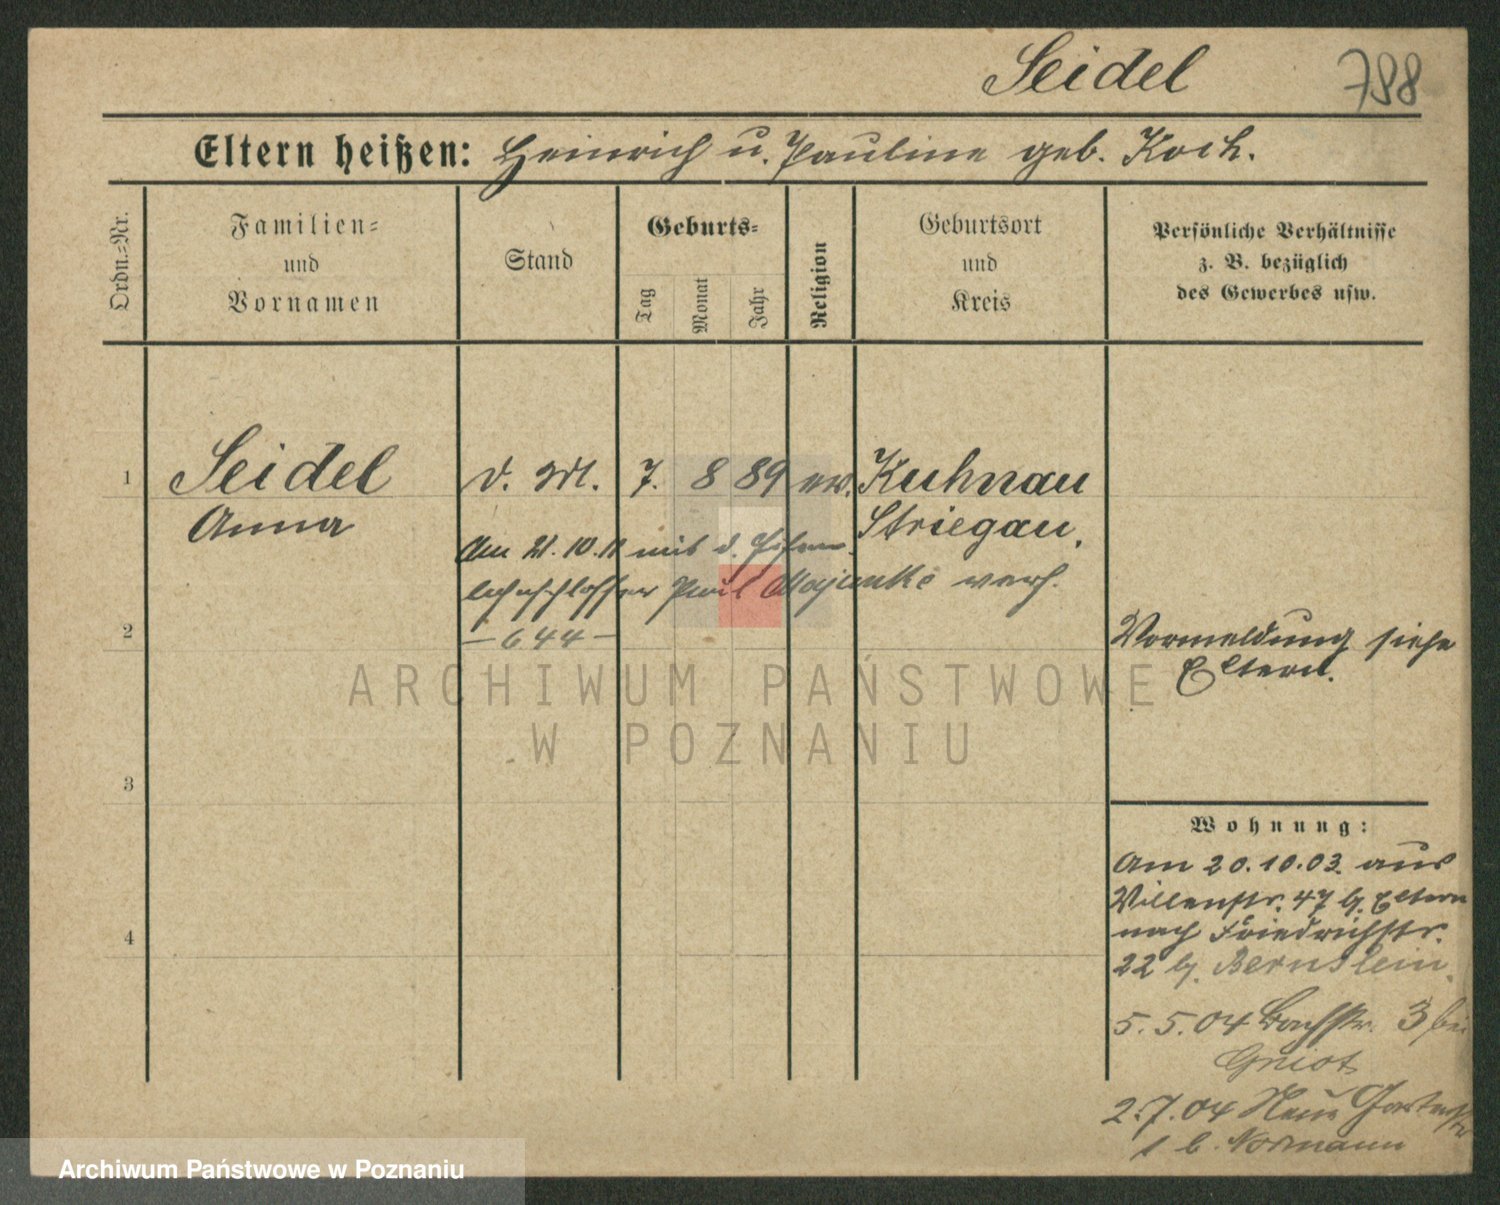 Seidel 798
Eltern heißen: Heinrich u. Pauline geb. Koch.
Ordn.-Nr.
Familien-
und
Vornamen
Stand
Geburts-
Tag
Monat
Jahr
Religion
Geburtsort
und
Kreis
Persönliche Verhältnisse
z. B. bezüglich
des Gewerbes usw.
1
Seidel
Anna
d. M.
7. 8 89
ev.
Kuhnau
Striegau.
Am 21.10.11 mit d. Eisen-
bahnschlosser Paul Majunke verh.
— 644 —
2
Vormeldung siehe
Eltern.
3
4
Wohnung:
Am 20.10.03. aus
Villenstr. 47 b. Eltern
nach Friedrichstr.
22 b. Bernstein.
5.5.04 Bachstr. 3 bei
Gniot
2.7.04 Neue Gartenstr
1 b. Normann
ARCHIWUM PAŃSTWOWE
W POZNANIU
Archiwum Państwowe w Poznaniu